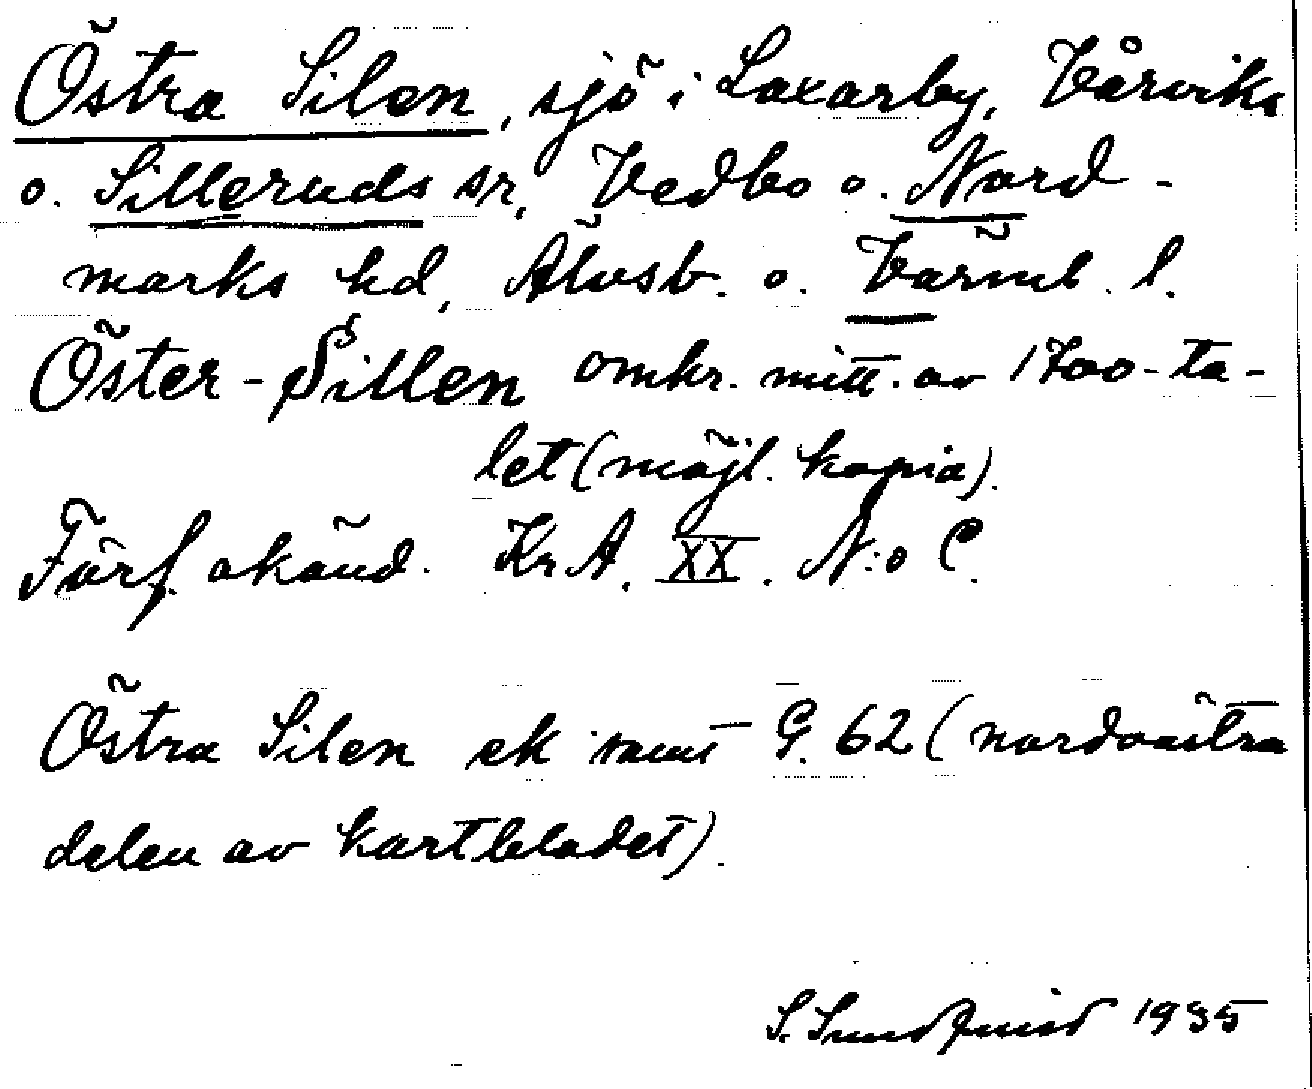 Östra Silen, sjö i Laxarby, Vårviks
o. Silleruds sr, Vedbo o. Nord-
marks hd, Älvsb. o. Värml. l.
Öster-Sillen omkr. mitt. av 1700-ta-
let (möjl. kopia).
Förf. okänd. KrA. XX. N:o C.
Östra Silen ek samt G. 62 (nordvästra
delen av kartbladet).
S. Sundquist 1935